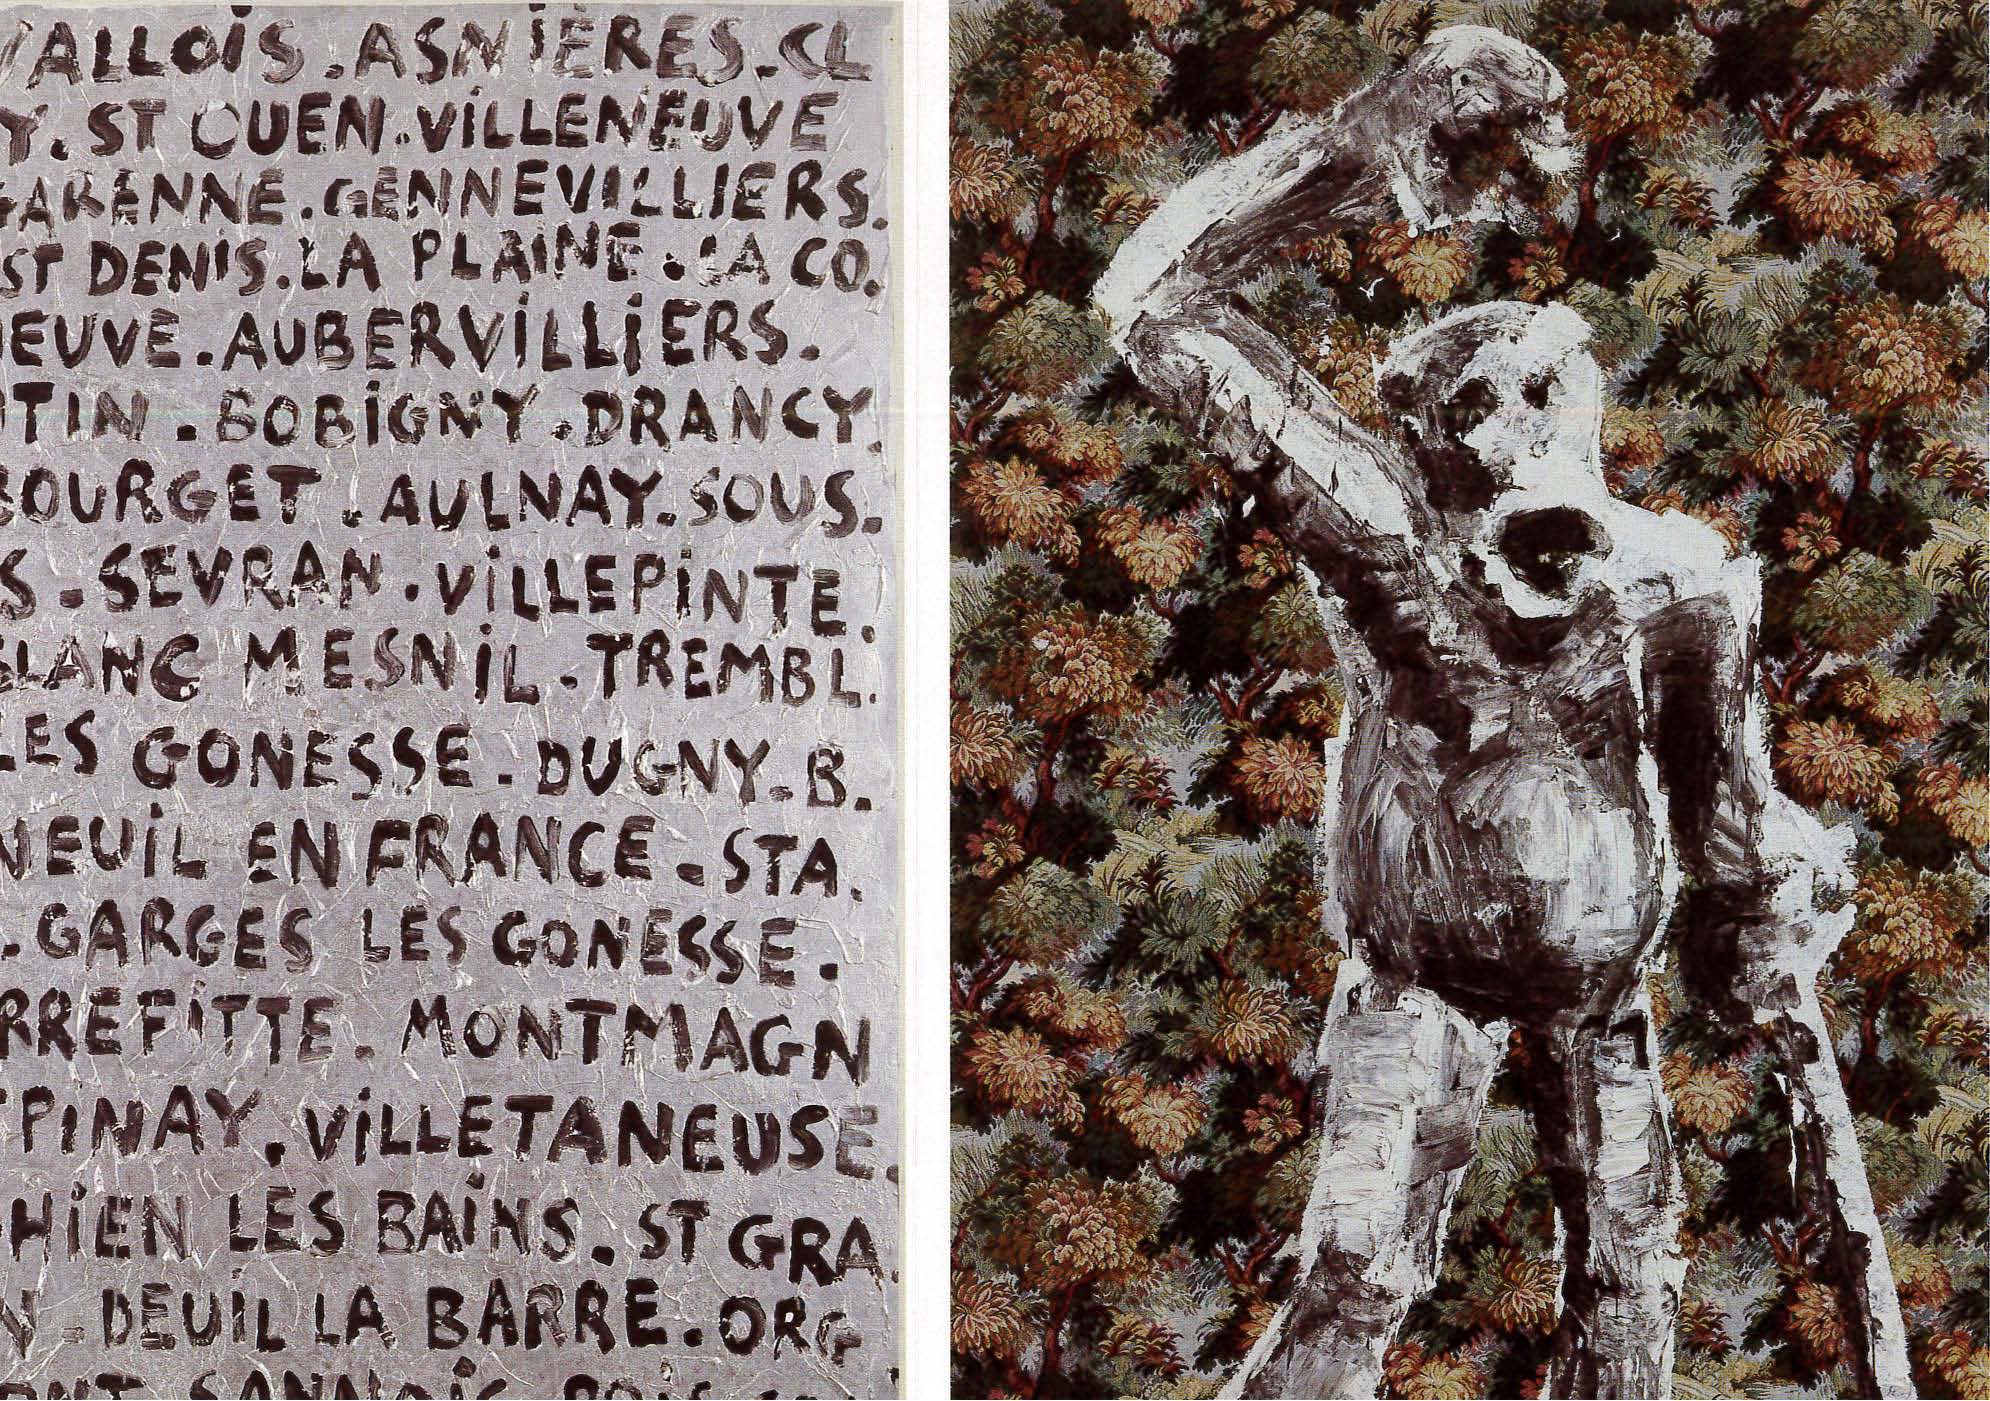 VALLOIS.ASNIÈRES.CL
Y.ST OUEN.VILLENEUVE
GARENNE.GENNEVILLIERS.
ST DENIS.LA PLAINE.LA CO.
NEUVE.AUBERVILLIERS.
TIN.BOBIGNY.DRANCY.
BOURGET.AULNAY.SOUS.
S.SEVRAN.VILLEPINTE.
BLANC MESNIL.TREMBL.
LES GONESSE.DUGNY.B.
NEUIL EN FRANCE.STA.
.GARGES LES GONESSE.
RREFITTE.MONTMAGN
EPINAY.VILLETANEUSE.
GHIEN LES BAINS.ST GRA.
N-DEUIL LA BARRE.ORG
SANNOIS